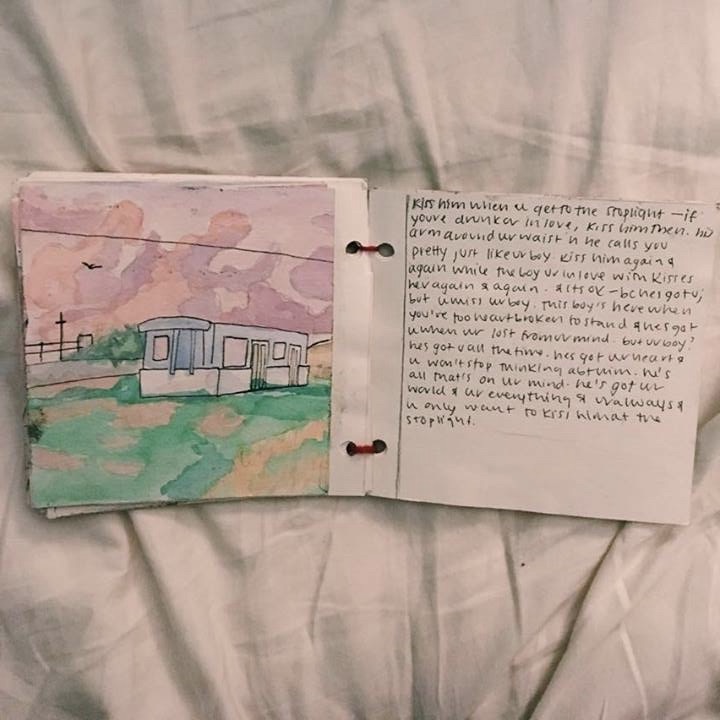 kiss him when u get to the stoplight — if
you're drunk or in love, kiss him then. his
arm around ur waist n he calls you
pretty just like ur boy. kiss him again &
again while the boy ur in love with kisses
her again & again. & its ok - bc hes got u;
but u miss ur boy. this boy's here when
you're too heartbroken to stand & hes got
u when ur lost from ur mind. but ur boy?
hes got u all the time. hes got ur heart &
u won't stop thinking abt him. he's
all that's on ur mind. he's got ur
world & ur everything & ur always &
u only want to kiss him at the
stoplight.